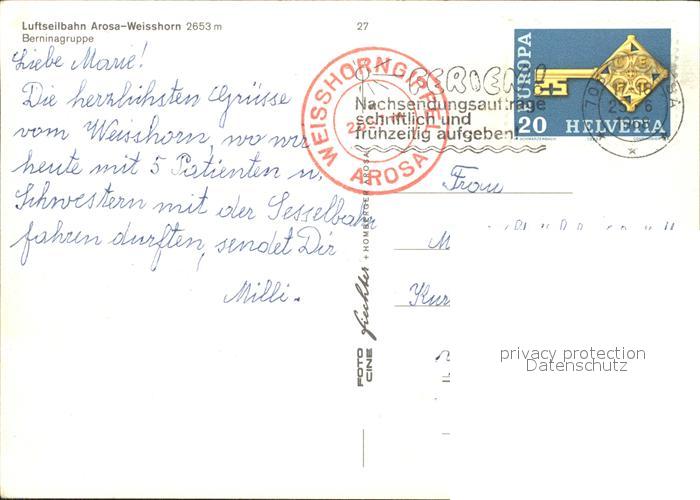 Luftseilbahn Arosa-Weisshorn 2653 m
Berninagruppe
27
Liebe Marie!
Die herzlichsten Grüsse
vom Weisshorn, wo wir
heute mit 5 Patienten u.
Schwestern mit der Sesselbahn
fahren durften, sendet Dir
Milli.
WEISSHORNGIPFEL
AROSA
FERIEN!
Nachsendungsaufträge
schriftlich und
frühzeitig aufgeben!
EUROPA
20 HELVETIA
Frau
M
Kur
FOTO
CINE
+ HOMBERGER AROSA
privacy protection
Datenschutz